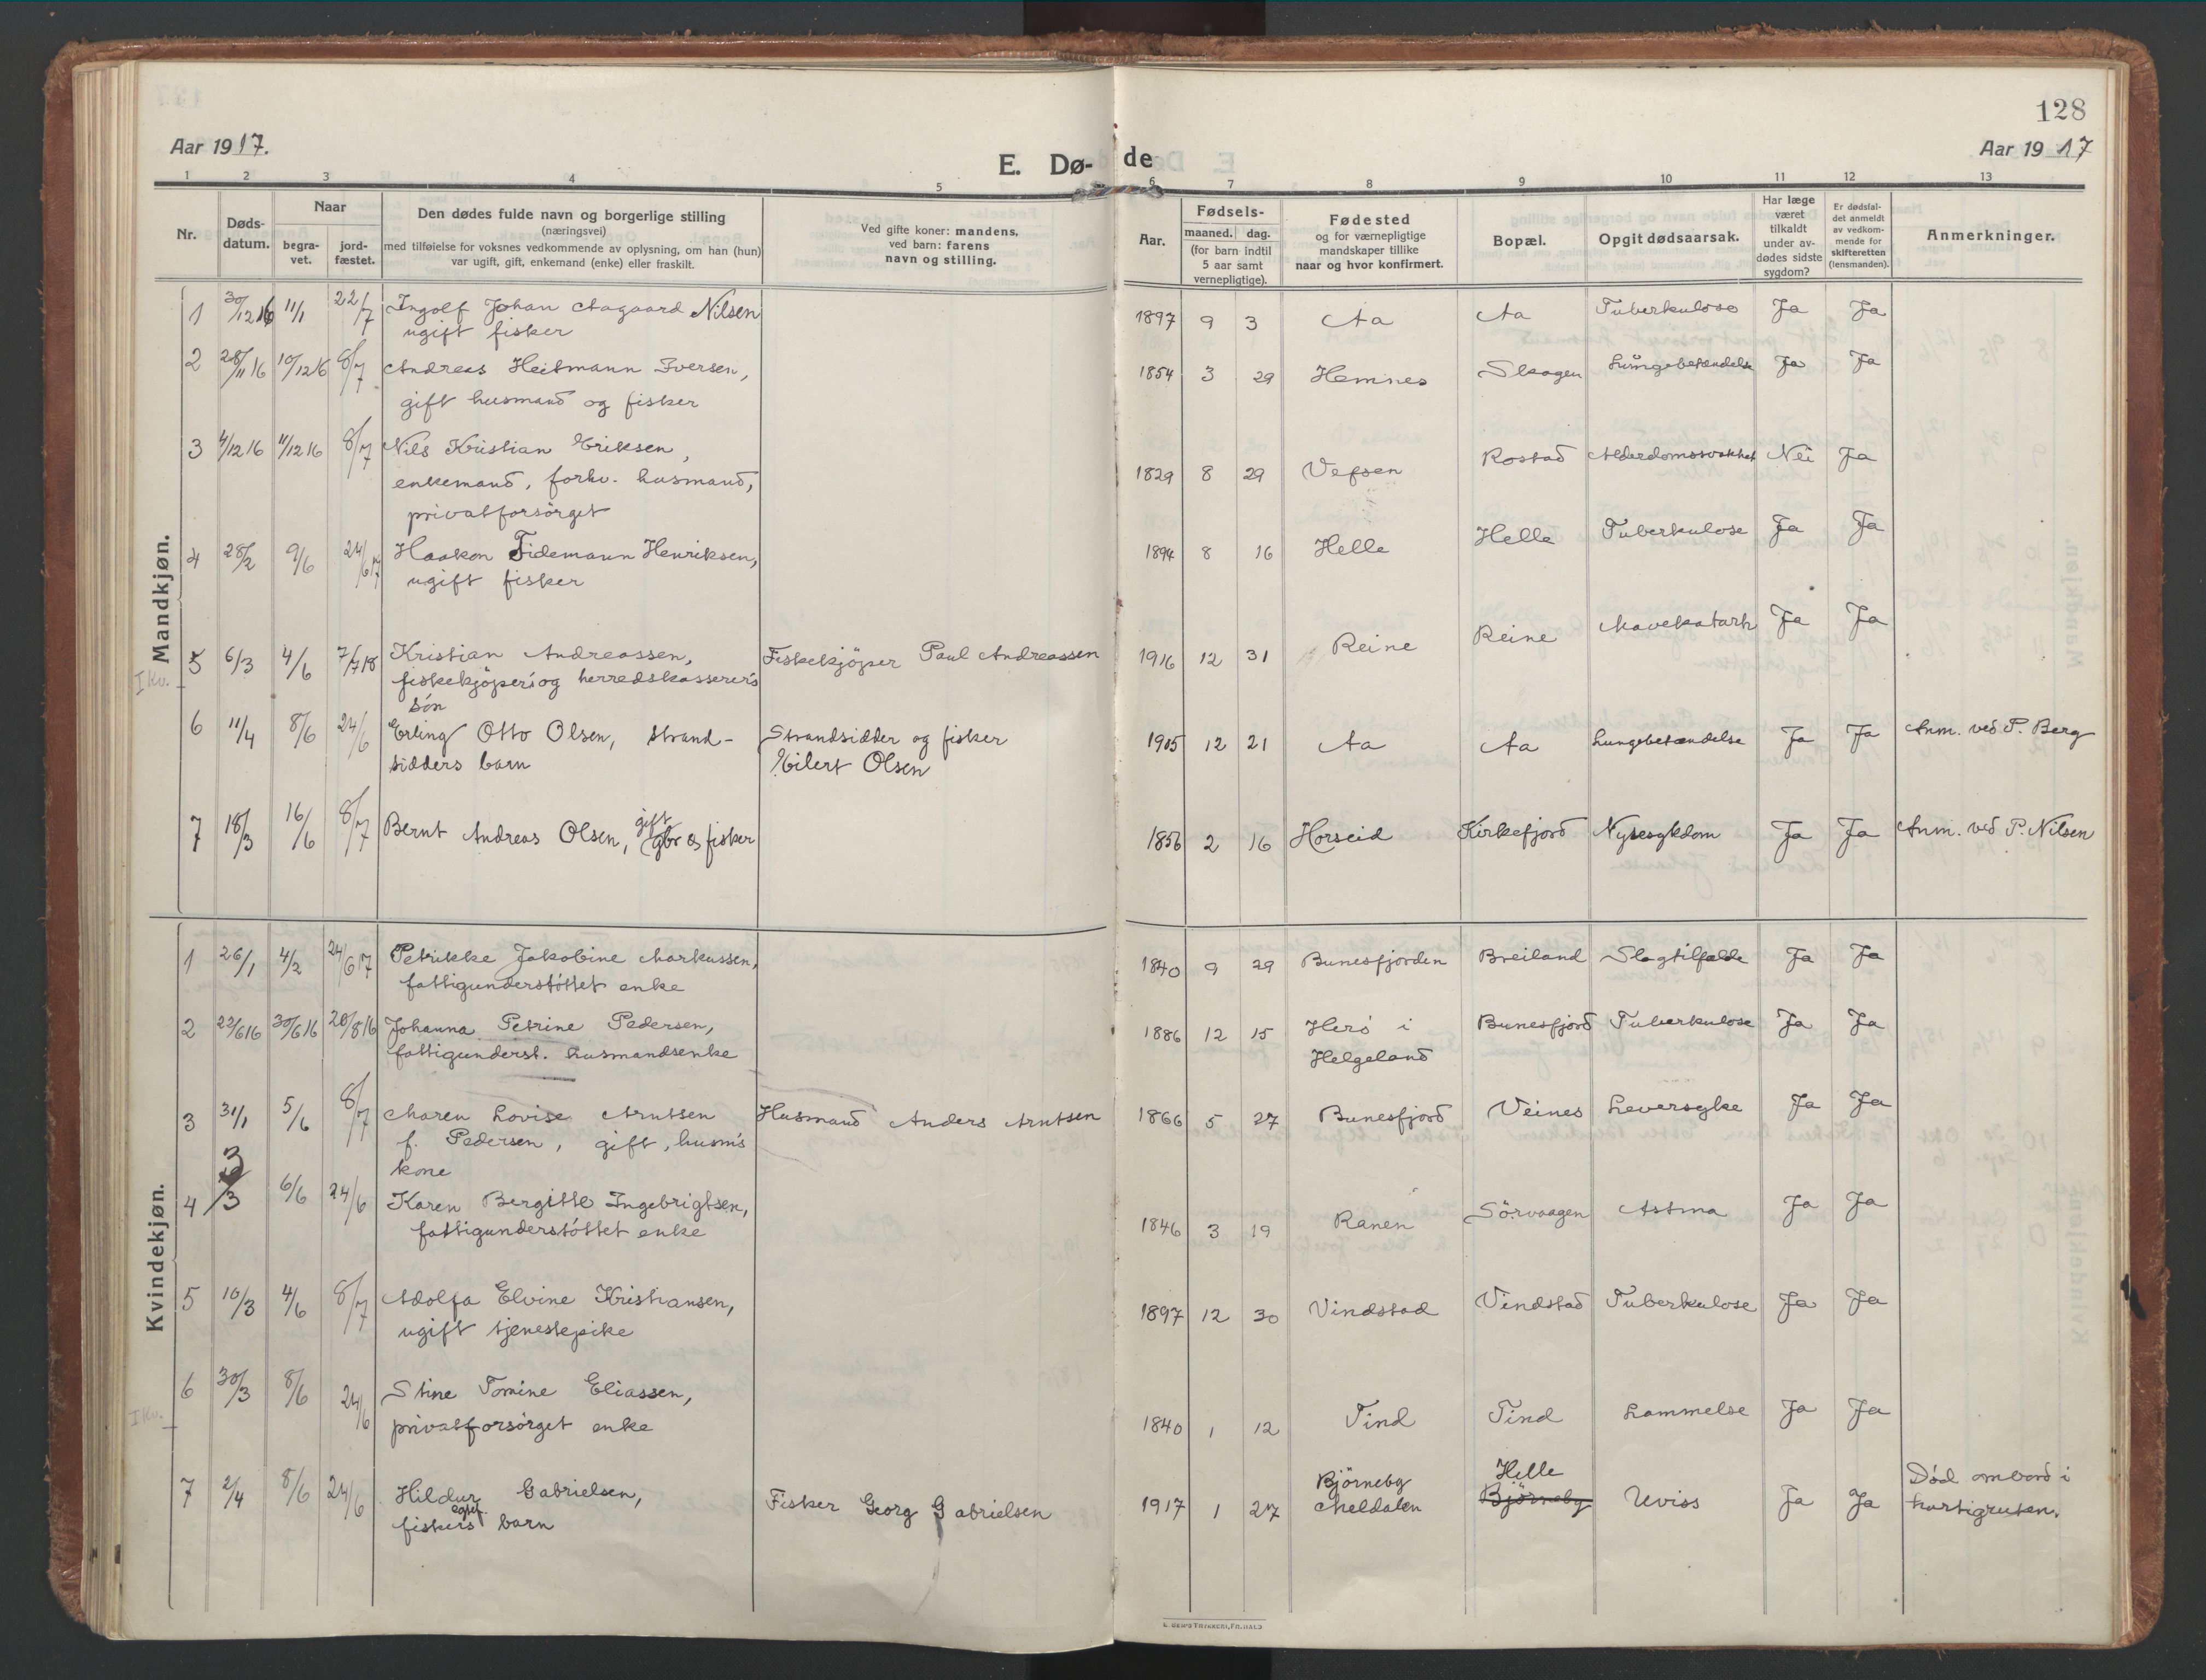 128
Aar 1917.
E. Dø-
de
Aar 1917
1 2 3 4 5 6 7 8 9 10 11 12 13
Nr.
Døds-
datum.
Naar
begra-
vet.
jord-
fæstet.
Den dødes fulde navn og borgerlige stilling
(næringsvei)
med tilføielse for voksnes vedkommende av oplysning, om han (hun)
var ugift, gift, enkemand (enke) eller fraskilt.
Ved gifte koner: mandens,
ved barn: farens
navn og stilling.
Aar.
Fødsels-
maaned. dag.
(for barn indtil
5 aar samt
vernepligtige).
Fødested
og for værnepligtige
mandskaper tillike
naar og hvor konfirmert.
Bopæl.
Opgit dødsaarsak.
Har læge
været
tilkaldt
under av-
dødes sidste
sygdom?
Er dødsfal-
det anmeldt
av vedkom-
mende for
skifteretten
(lensmanden).
Anmerkninger.
Mandkjøn.
1 30/12 16 11/1 22/7 Ingolf Johan Aagaard Nilsen 1897 9 3 Aa Aa Tuberkulose Ja Ja
ugift fisker
2 28/11 16 10/12 16 8/7 Andreas Heitmann Iversen, 1854 3 29 Hemnes Skogen Lungebetændelse Ja Ja
gift husmand og fisker
3 4/12 16 11/12 16 8/7 Nils Kristian Eriksen, 1829 8 29 Vefsen Rostad Alderdomssvakhet Nei Ja
enkemand, forhv. husmand,
privatforsörget
4 28/2 9/6 24/6 17 Haakon Tidemann Henriksen, 1894 8 16 Helle Helle Tuberkulose Ja Ja
ugift fisker
5 6/3 4/6 7/7 18 Kristian Andreassen, Fiskekjöper Paul Andreassen 1916 12 31 Reine Reine Mavekatarh Ja Ja
I Kv.
fiskekjöper's og herredskasserer's
sön
6 11/4 8/6 24/6 Erling Otto Olsen, strand- Strandsidder og fisker 1905 12 21 Aa Aa Lungebetændelse Ja Ja Anm. ved P. Berg
sidders barn Eilert Olsen
7 18/3 16/6 8/7 Bernt Andreas Olsen, gift gbr og fisker 1856 2 16 Horseid Kirkefjord Nyresykdom Ja Ja Anm. ved P. Nilsen
Kvindekjøn.
1 26/1 4/2 24/6 17 Petrikke Jakobine Markussen, 1840 9 29 Bunesfjorden Breiland Slagtilfælde Ja Ja
fattigunderstöttet enke
2 22/6 16 30/6 16 20/8 16 Johanna Petrine Pedersen, 1886 12 15 Herö i Bunesfjord Tuberkulose Ja Ja
fattigunderst. husmandsenke Helgeland
3 31/1 5/6 8/7 Maren Lovise Arntsen Husmand Anders Arntsen 1866 5 27 Bunesfjord Veines Leversyke Ja Ja
f. Pedersen, gift, husm's
kone
4 3/3 6/6 24/6 Karen Bergitte Ingebrigtsen, 1846 3 19 Ranen Sörvaagen Astma Ja Ja
fattigunderstöttet enke
5 10/3 4/6 8/7 Adolfa Elvine Kristiansen, 1897 12 30 Vindstad Vindstad Tuberkulose Ja Ja
ugift tjenestepike
6 30/3 8/6 24/6 Stine Tomine Eliassen, 1840 1 12 Tind Tind Lammelse Ja Ja
I Kv.
privatforsörget enke
7 2/4 8/6 24/6 Hildur Gabrielsen, Fisker Georg Gabrielsen 1917 1 27 Björneby Meldalen Helle Björneby Uviss Ja Ja Död ombord i
fiskers barn hurtigruten.